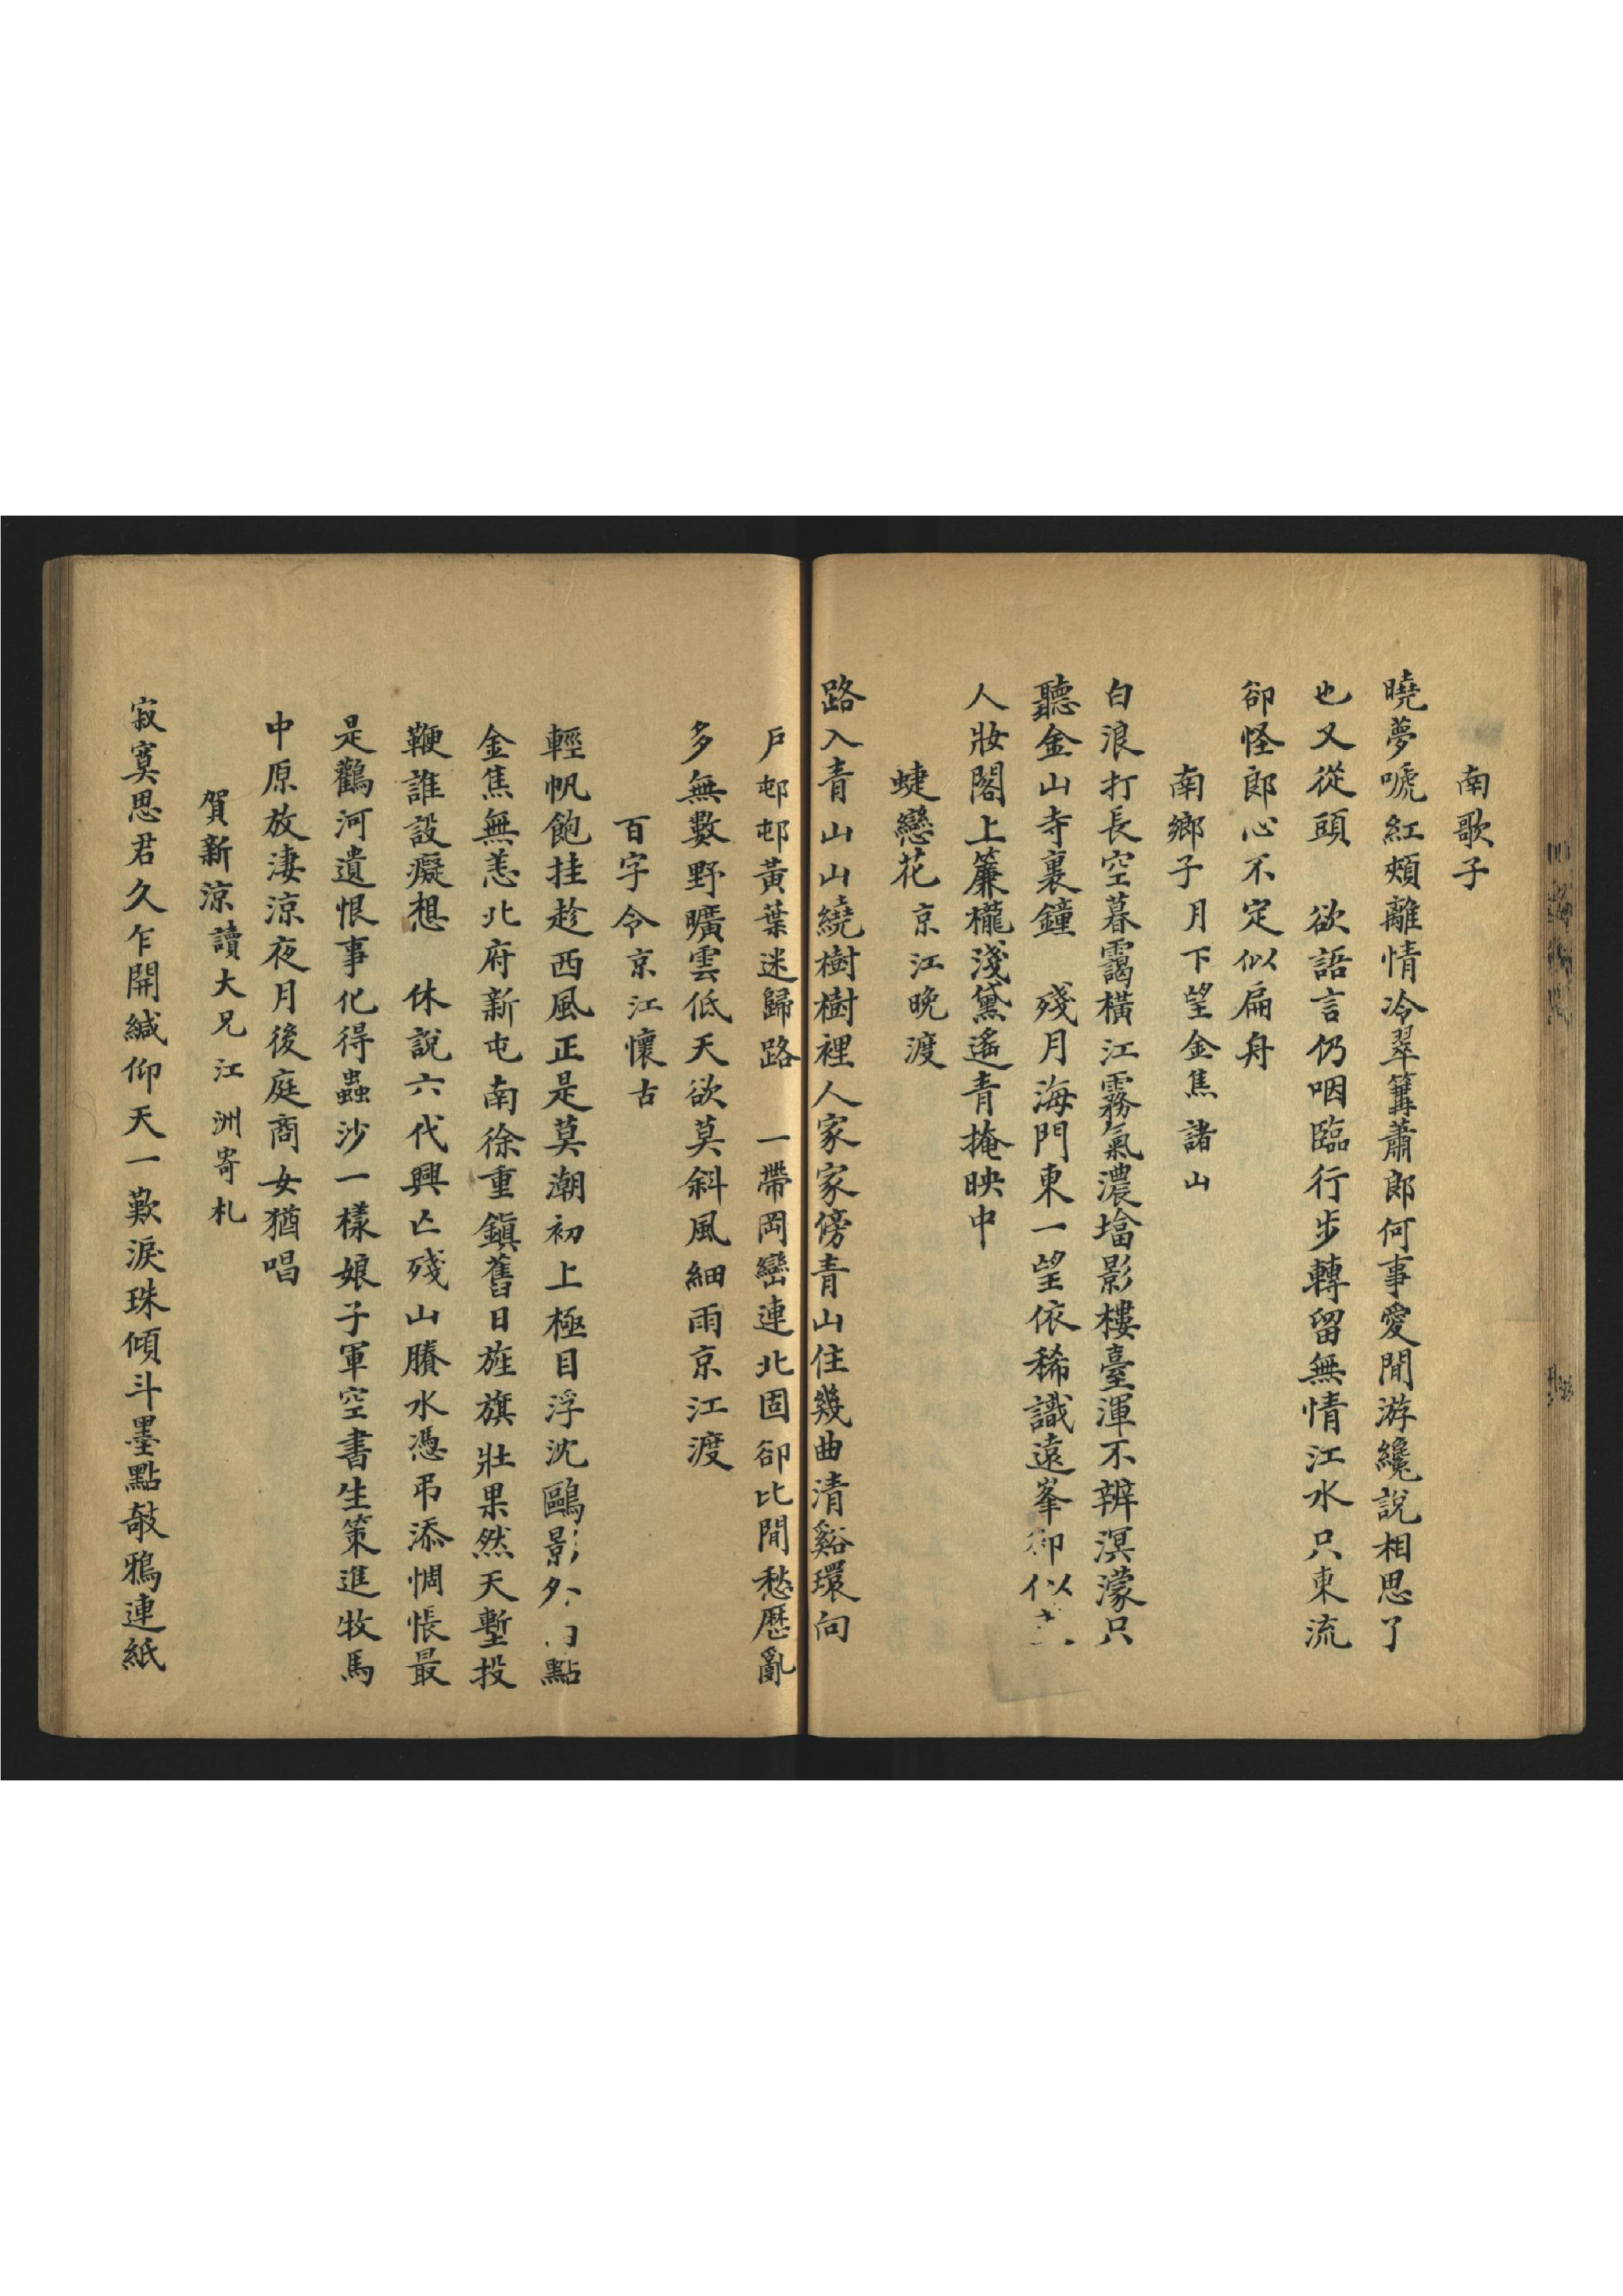 南歌子
曉夢唬紅頰離情冷翠篝蕭郎何事愛閒游纔說相思了
也又從頭　欲語言仍咽臨行步轉留無情江水只東流
卻怪郎心不定似扁舟
南鄉子月下望金焦諸山
白浪打長空暮靄橫江霧氣濃墖影樓臺渾不辨溟濛只
聽金山寺裏鐘　殘月海門東一望依稀識遠峯卻似
人妝閣上簾櫳淺黛遙青掩映中
蜨戀花京江晚渡
路入青山山繞樹樹裡人家家傍青山住幾曲清谿環向
戶邨邨黃葉迷歸路　一帶岡巒連北固卻比閒愁歷亂
多無數野曠雲低天欲莫斜風細雨京江渡
百字令京江懷古
輕帆飽挂趁西風正是莫潮初上極目浮沈鷗影外點
金焦無恙北府新屯南徐重鎮舊日旌旗壯果然天塹投
鞭誰設癡想　休說六代興亡殘山賸水憑弔添惆悵最
是鸛河遺恨事化得蟲沙一樣娘子軍空書生策進牧馬
中原放淒涼夜月後庭商女猶唱
賀新涼讀大兄江洲寄札
寂寞思君久乍開緘仰天一歎淚珠傾斗墨點攲鴉連紙